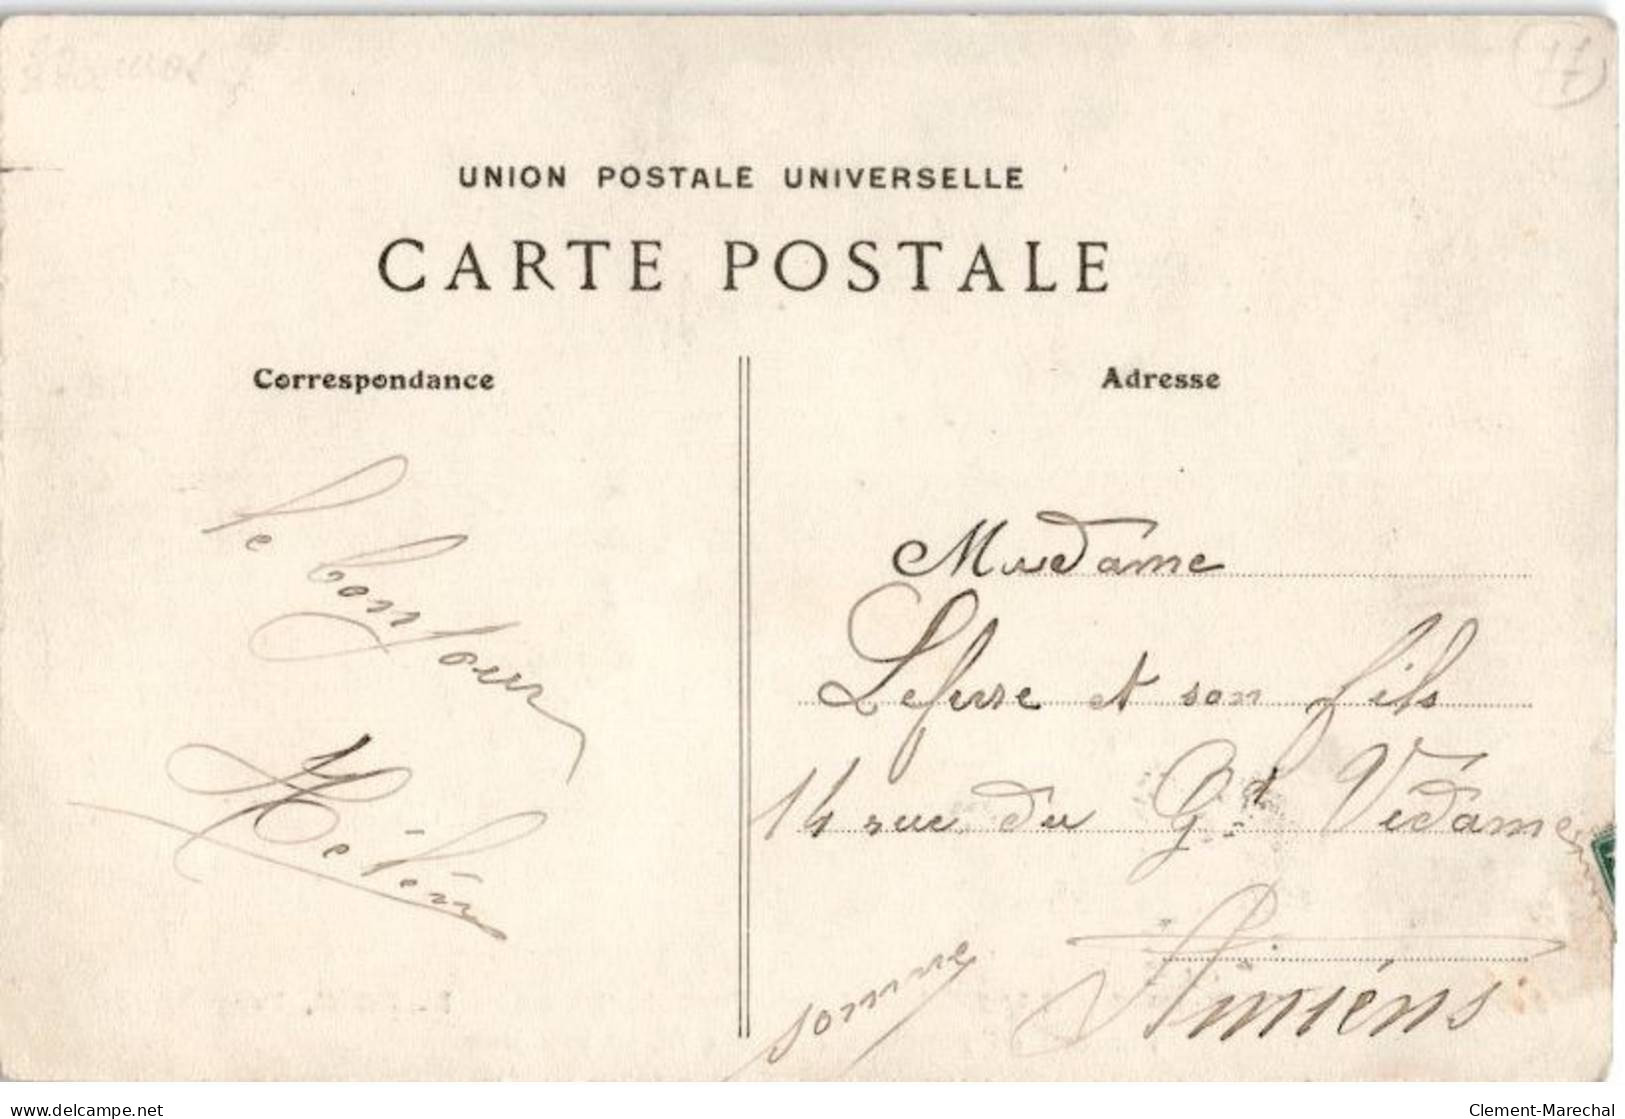 UNION POSTALE UNIVERSELLE
CARTE POSTALE
Correspondance
le
bonjour
Hélène
Adresse
Madame
Lefevre et son fils
14 rue du Gd Vidame
Amiéns
somme
www.delcampe.net
Clement-Marechal